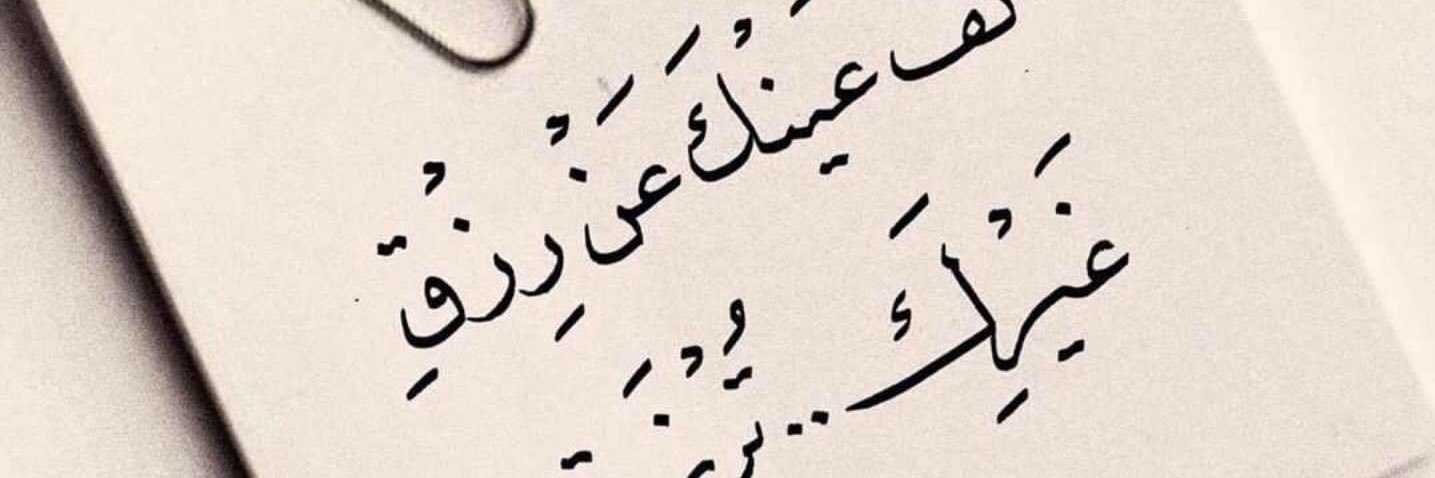 كف عَيْنَك عَنْ رِزْقِ
غَيْرِكَ ..